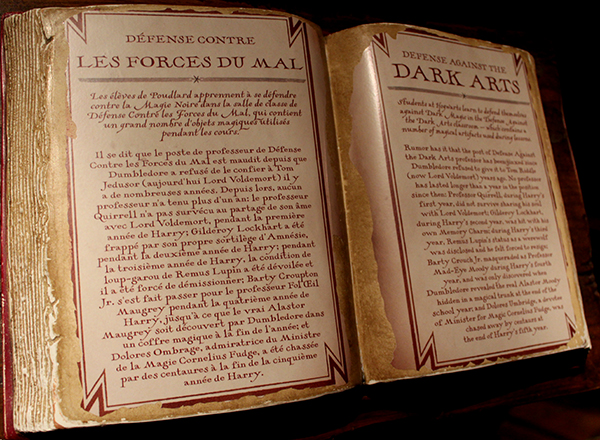 DÉFENSE CONTRE
LES FORCES DU MAL
Les élèves de Poudlard apprennent à se défendre
contre la Magie Noire dans la salle de classe de
Défense Contre les Forces du Mal, qui contient
un grand nombre d'objets magiques utilisés
pendant les cours.
Il se dit que le poste de professeur de Défense
Contre les Forces du Mal est maudit depuis que
Dumbledore a refusé de le confier à Tom
Jedusor (aujourd'hui Lord Voldemort) il y
a de nombreuses années. Depuis lors, aucun
professeur n'a tenu plus d'un an: le professeur
Quirrell n'a pas survécu au partage de son âme
avec Lord Voldemort, pendant la première
année de Harry; Gilderoy Lockhart a été
frappé par son propre sortilège d'Amnésie,
pendant la deuxième année de Harry; pendant
la troisième année de Harry, la condition de
loup-garou de Remus Lupin a été dévoilée et
il a été forcé de démissionner; Barty Croupton
Jr. s'est fait passer pour le professeur Fol Œil
Maugrey pendant la quatrième année de
Harry, jusqu'à ce que le vrai Alastor
Maugrey soit découvert par Dumbledore dans
un coffre magique à la fin de l'année; et
Dolores Ombrage, admiratrice du Ministre
de la Magie Cornelius Fudge, a été chassée
par des centaures à la fin de la cinquième
année de Harry.
DEFENSE AGAINST THE
DARK ARTS
Students at Hogwarts learn to defend themselves
against Dark Magic in the Defense Against
the Dark Arts classroom — which contains a
number of magical artifacts used during lessons.
Rumor has it that the post of Defense Against
the Dark Arts professor has been jinxed since
Dumbledore refused to give it to Tom Riddle
(now Lord Voldemort) years ago. No professor
has lasted longer than a year in the position
since then: Professor Quirrell, during Harry's
first year, did not survive sharing his soul
with Lord Voldemort; Gilderoy Lockhart,
during Harry's second year, was hit with his
own Memory Charm; during Harry's third
year, Remus Lupin's status as a werewolf
was disclosed and he felt forced to resign;
Barty Crouch Jr. masqueraded as Professor
Mad-Eye Moody during Harry's fourth
year, and was only discovered when
Dumbledore revealed the real Alastor Moody
hidden in a magical trunk at the end of the
school year; and Dolores Umbridge, a devotee
of Minister for Magic Cornelius Fudge, was
chased away by centaurs at
the end of Harry's fifth year.